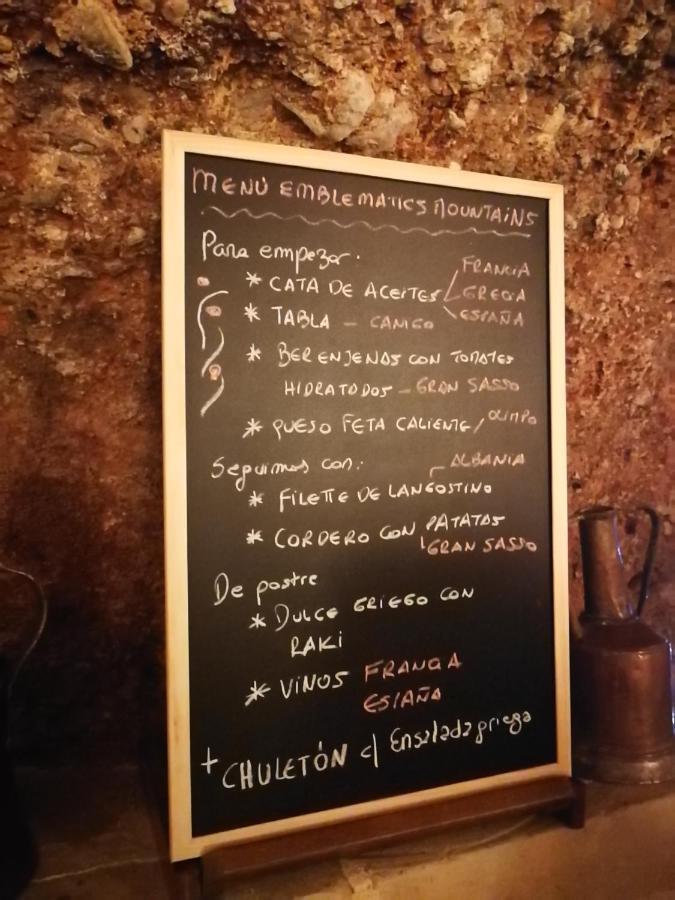 MENÚ EMBLEMATICS MOUNTAINS
Para empezar:
* CATA DE ACEITES FRANCIA
GRECIA
ESPAÑA
* TABLA - CANIGO
* BERENJENAS CON TOMATES
HIDRATADOS - GRAN SASSO
* QUESO FETA CALIENTE / OLIMPO
Seguimos con: ALBANIA
* FILETTE DE LANGOSTINO
* CORDERO CON PATATAS
GRAN SASSO
De postre
* DULCE GRIEGO CON
RAKI
* VINOS FRANCIA
ESPAÑA
+ CHULETÓN c/ Ensalada griega